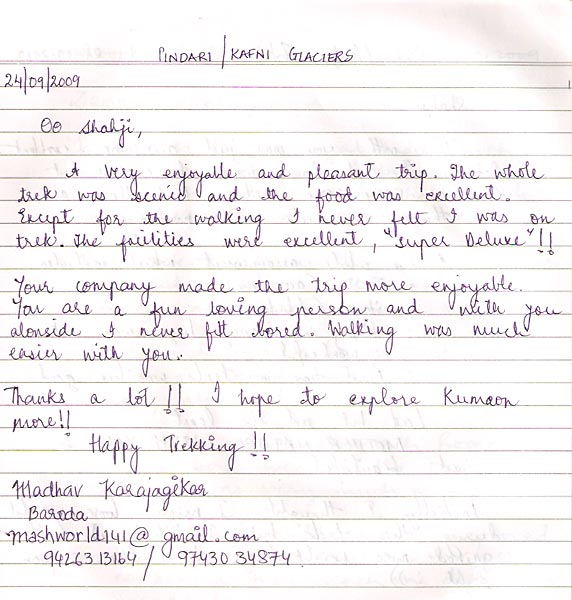 PINDARI / KAFNI GLACIERS
24/09/2009
Oo Shahji,
A very enjoyable and pleasant trip. The whole
trek was scenic and the food was excellent.
Except for the walking I never felt I was on
trek. The facilities were excellent, "Super Deluxe"!!
Your company made the trip more enjoyable.
You are a fun loving person and with you
alonside I never felt bored. Walking was much
easier with you.
Thanks a lot!! I hope to explore Kumaon
more!!
Happy Trekking!!
Madhav Karajagikar
Baroda
mashworld141@gmail.com
94263 13164 / 97430 34874